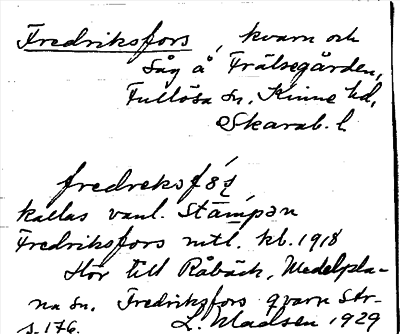 Fredriksfors, kvarn och
såg å Frälsegården,
Fullösa sn, Kinne hd,
Skarab. l.
fredreksfo̍ṣ
kallas vanl. Stämpən
Fredriksfors mtl. kb. 1918
Hör till Råbäck, Medelpla-
na sn. Fredriksfors qvarn Str-
s. 176. 1929